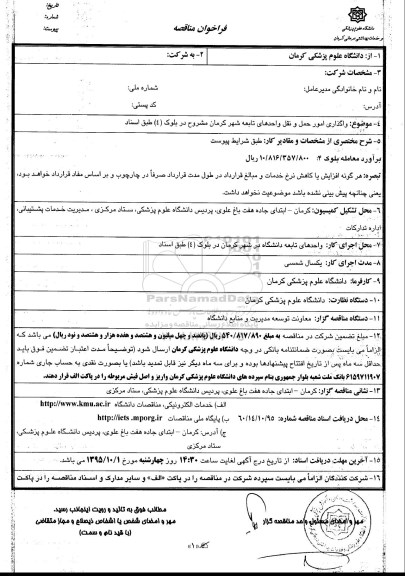 تاریخ:
شماره:
پیوست:
فراخوان مناقصه
دانشگاه علوم پزشکی
و خدمات بهداشتی درمانی کرمان
۱- از: دانشگاه علوم پزشکی کرمان
۲- به شرکت:
۳- مشخصات شرکت:
نام و نام خانوادگی مدیرعامل:
شماره ملی:
آدرس:
کد پستی:
۴- موضوع: واگذاری امور حمل و نقل واحدهای تابعه شهر کرمان مشروح در بلوک (٤) طبق اسناد
۵- شرح مختصری از مشخصات و مقادیر کار: طبق شرایط پیوست
برآورد معامله بلوک ۴: ۱۰/۸۱۶/۳۵۷/۸۰۰ ریال
تبصره: هر گونه افزایش یا کاهش نرخ خدمات و مبالغ قرارداد در طول مدت قرارداد صرفاً در چارچوب و بر اساس مفاد قرارداد خواهد بود،
یعنی چنانچه پیش بینی نشده باشد موضوعیت نخواهد داشت.
۶- محل تشکیل کمیسیون: کرمان – ابتدای جاده هفت باغ علوی، پردیس دانشگاه علوم پزشکی، ستاد مرکزی - مدیریت خدمات پشتیبانی،
اداره تدارکات
۷- محل اجرای کار: واحدهای تابعه دانشگاه در شهر کرمان در بلوک (٤) طبق اسناد
۸- مدت اجرای کار: یکسال شمسی
۹- کارفرما: دانشگاه علوم پزشکی کرمان
۱۰- دستگاه نظارت: دانشگاه علوم پزشکی کرمان
ParsNamadData
۱۱- دستگاه مناقصه گزار: معاونت توسعه مدیریت و منابع دانشگاه
۱۲- مبلغ تضمین شرکت در مناقصه به مبلغ ۵۴۰/۸۱۷/۸۹۰ ریال (پانصد و چهل میلیون و هشتصد و هفده هزار و هشتصد و نود ریال) می باشد که
الزاماً می بایست بصورت ضمانتنامه بانکی در وجه دانشگاه علوم پزشکی کرمان ارسال شود (توضیحاً مدت اعتبار تضمین فوق باید
حداقل سه ماه پس از تاریخ افتتاح پیشنهادها بوده و برای سه ماه دیگر نیز قابل تمدید باشد) یا بصورت نقدی به حساب جاری شماره
۶۱۵۹۷۱۱۹۰۷ بانک ملت شعبه بلوار جمهوری بنام سپرده های دانشگاه علوم پزشکی کرمان واریز و اصل فیش مربوطه را در پاکت الف قرار دهند.
۱۳- نشانی مناقصه گزار: کرمان – ابتدای جاده هفت باغ علوی، پردیس دانشگاه علوم پزشکی، ستاد مرکزی
۱۴- محل دریافت اسناد مناقصه شماره: ۶۰/۱۴/۱۰/۹۵
الف) خدمات الکترونیکی، مناقصات دانشگاه http://www.kmu.ac.ir
ب) پایگاه ملی مناقصات http://iets.mporg.ir
ج) آدرس: کرمان – ابتدای جاده هفت باغ علوی، پردیس دانشگاه علوم پزشکی،
ستاد مرکزی
۱۵- آخرین مهلت دریافت اسناد: از تاریخ درج آگهی لغایت ساعت ۱۴:۳۰ روز چهارشنبه مورخ ۱۳۹۵/۱۰/۱ می باشد.
۱۶- شرکت کنندگان الزاماً می بایست سپرده شرکت در مناقصه را در پاکت «الف» و سایر مدارک و اسناد مناقصه را در پاکت
مطالب فوق به تائید و رویت اینجانب رسید.
مهر و امضای شخص یا اشخاص ذیصلاح و مجاز متقاضی
(با قید نام و سمت)
مهر و امضای مسئول واحد مناقصه گزار